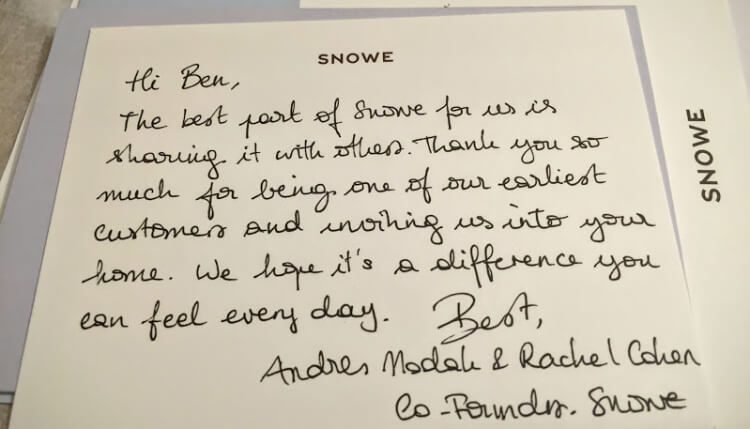 SNOWE
Hi Ben,
The best part of Snowe for us is
sharing it with others. Thank you so
much for being one of our earliest
customers and inviting us into your
home. We hope it's a difference you
can feel every day. Best,
Andres Modak & Rachel Cohen
Co-Founders. Snowe
SNOWE